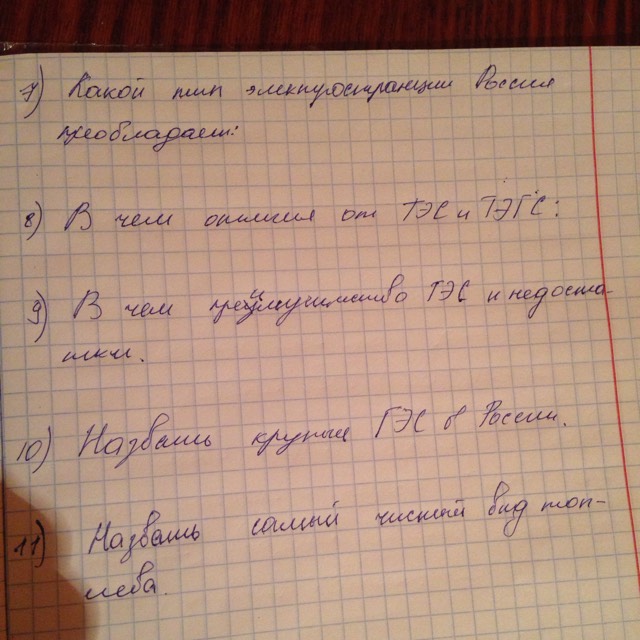 7) Какой тип электространции Россия
преобладает:
8) В чем отличия от ТЭС и ТЭГС:
9) В чем преимущимство ТЭС и недоста-
тки.
10) Назвать крупные ГЭС в России.
11) Назвать самый чистый вид топ-
лева.